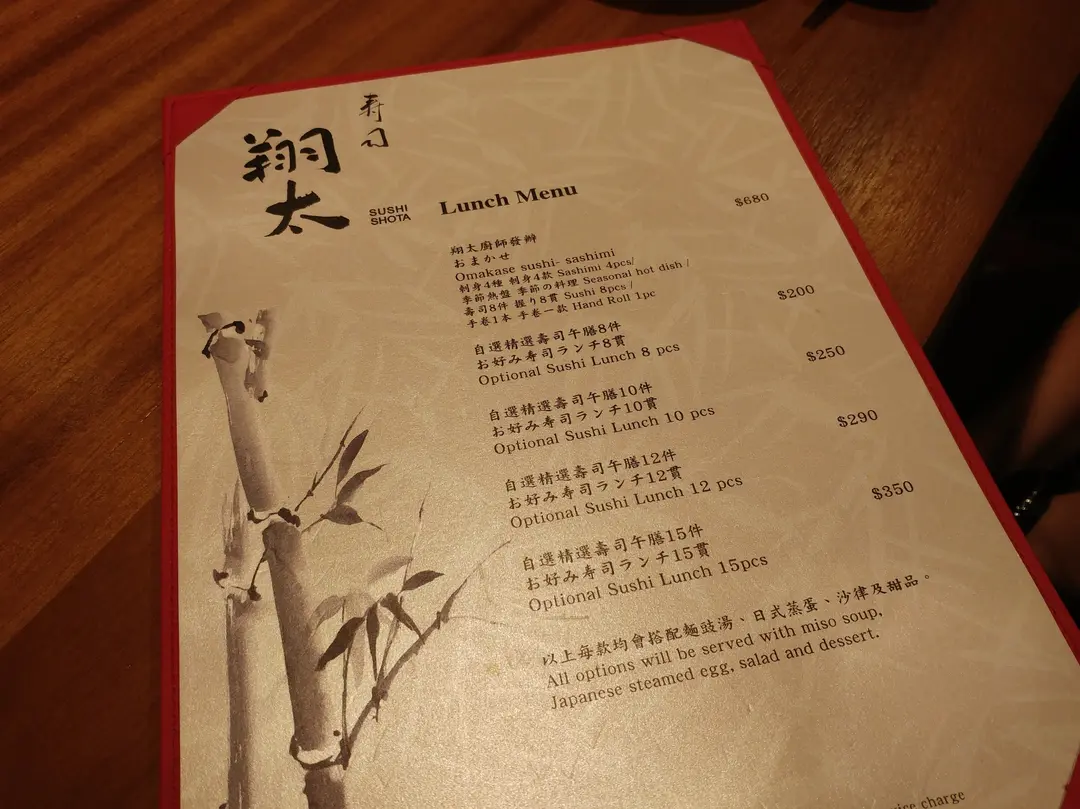 寿司
翔太
SUSHI
SHOTA
Lunch Menu
$680
翔太廚師發辦
おまかせ
Omakase sushi- sashimi
刺身4種 刺身4款 Sashimi 4pcs/
季節熱盤 季節の料理 Seasonal hot dish /
壽司8件 握り8貫 Sushi 8pcs /
手卷1本 手卷一款 Hand Roll 1pc
$200
自選精選壽司午膳8件
お好み寿司ランチ8貫
Optional Sushi Lunch 8 pcs
$250
自選精選壽司午膳10件
お好み寿司ランチ10貫
Optional Sushi Lunch 10 pcs
$290
自選精選壽司午膳12件
お好み寿司ランチ12貫
Optional Sushi Lunch 12 pcs
$350
自選精選壽司午膳15件
お好み寿司ランチ15貫
Optional Sushi Lunch 15pcs
以上每款均會搭配麵豉湯、日式蒸蛋、沙律及甜品。
All options will be served with miso soup,
Japanese steamed egg, salad and dessert.
charge